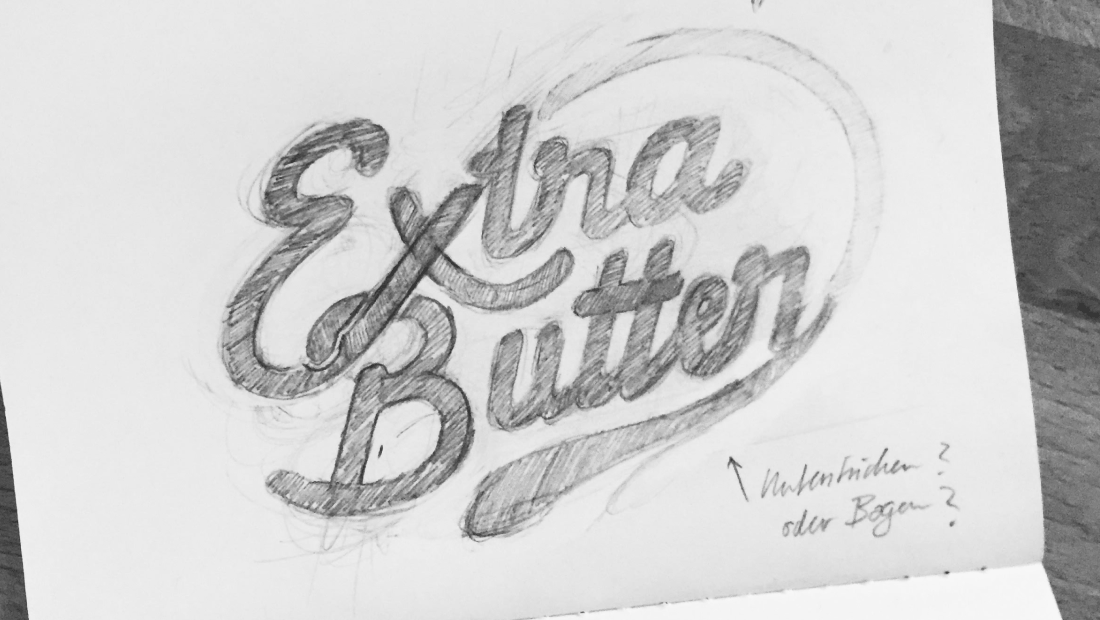 Extra
Butter
Unterstrichen ?
oder Bogen ?